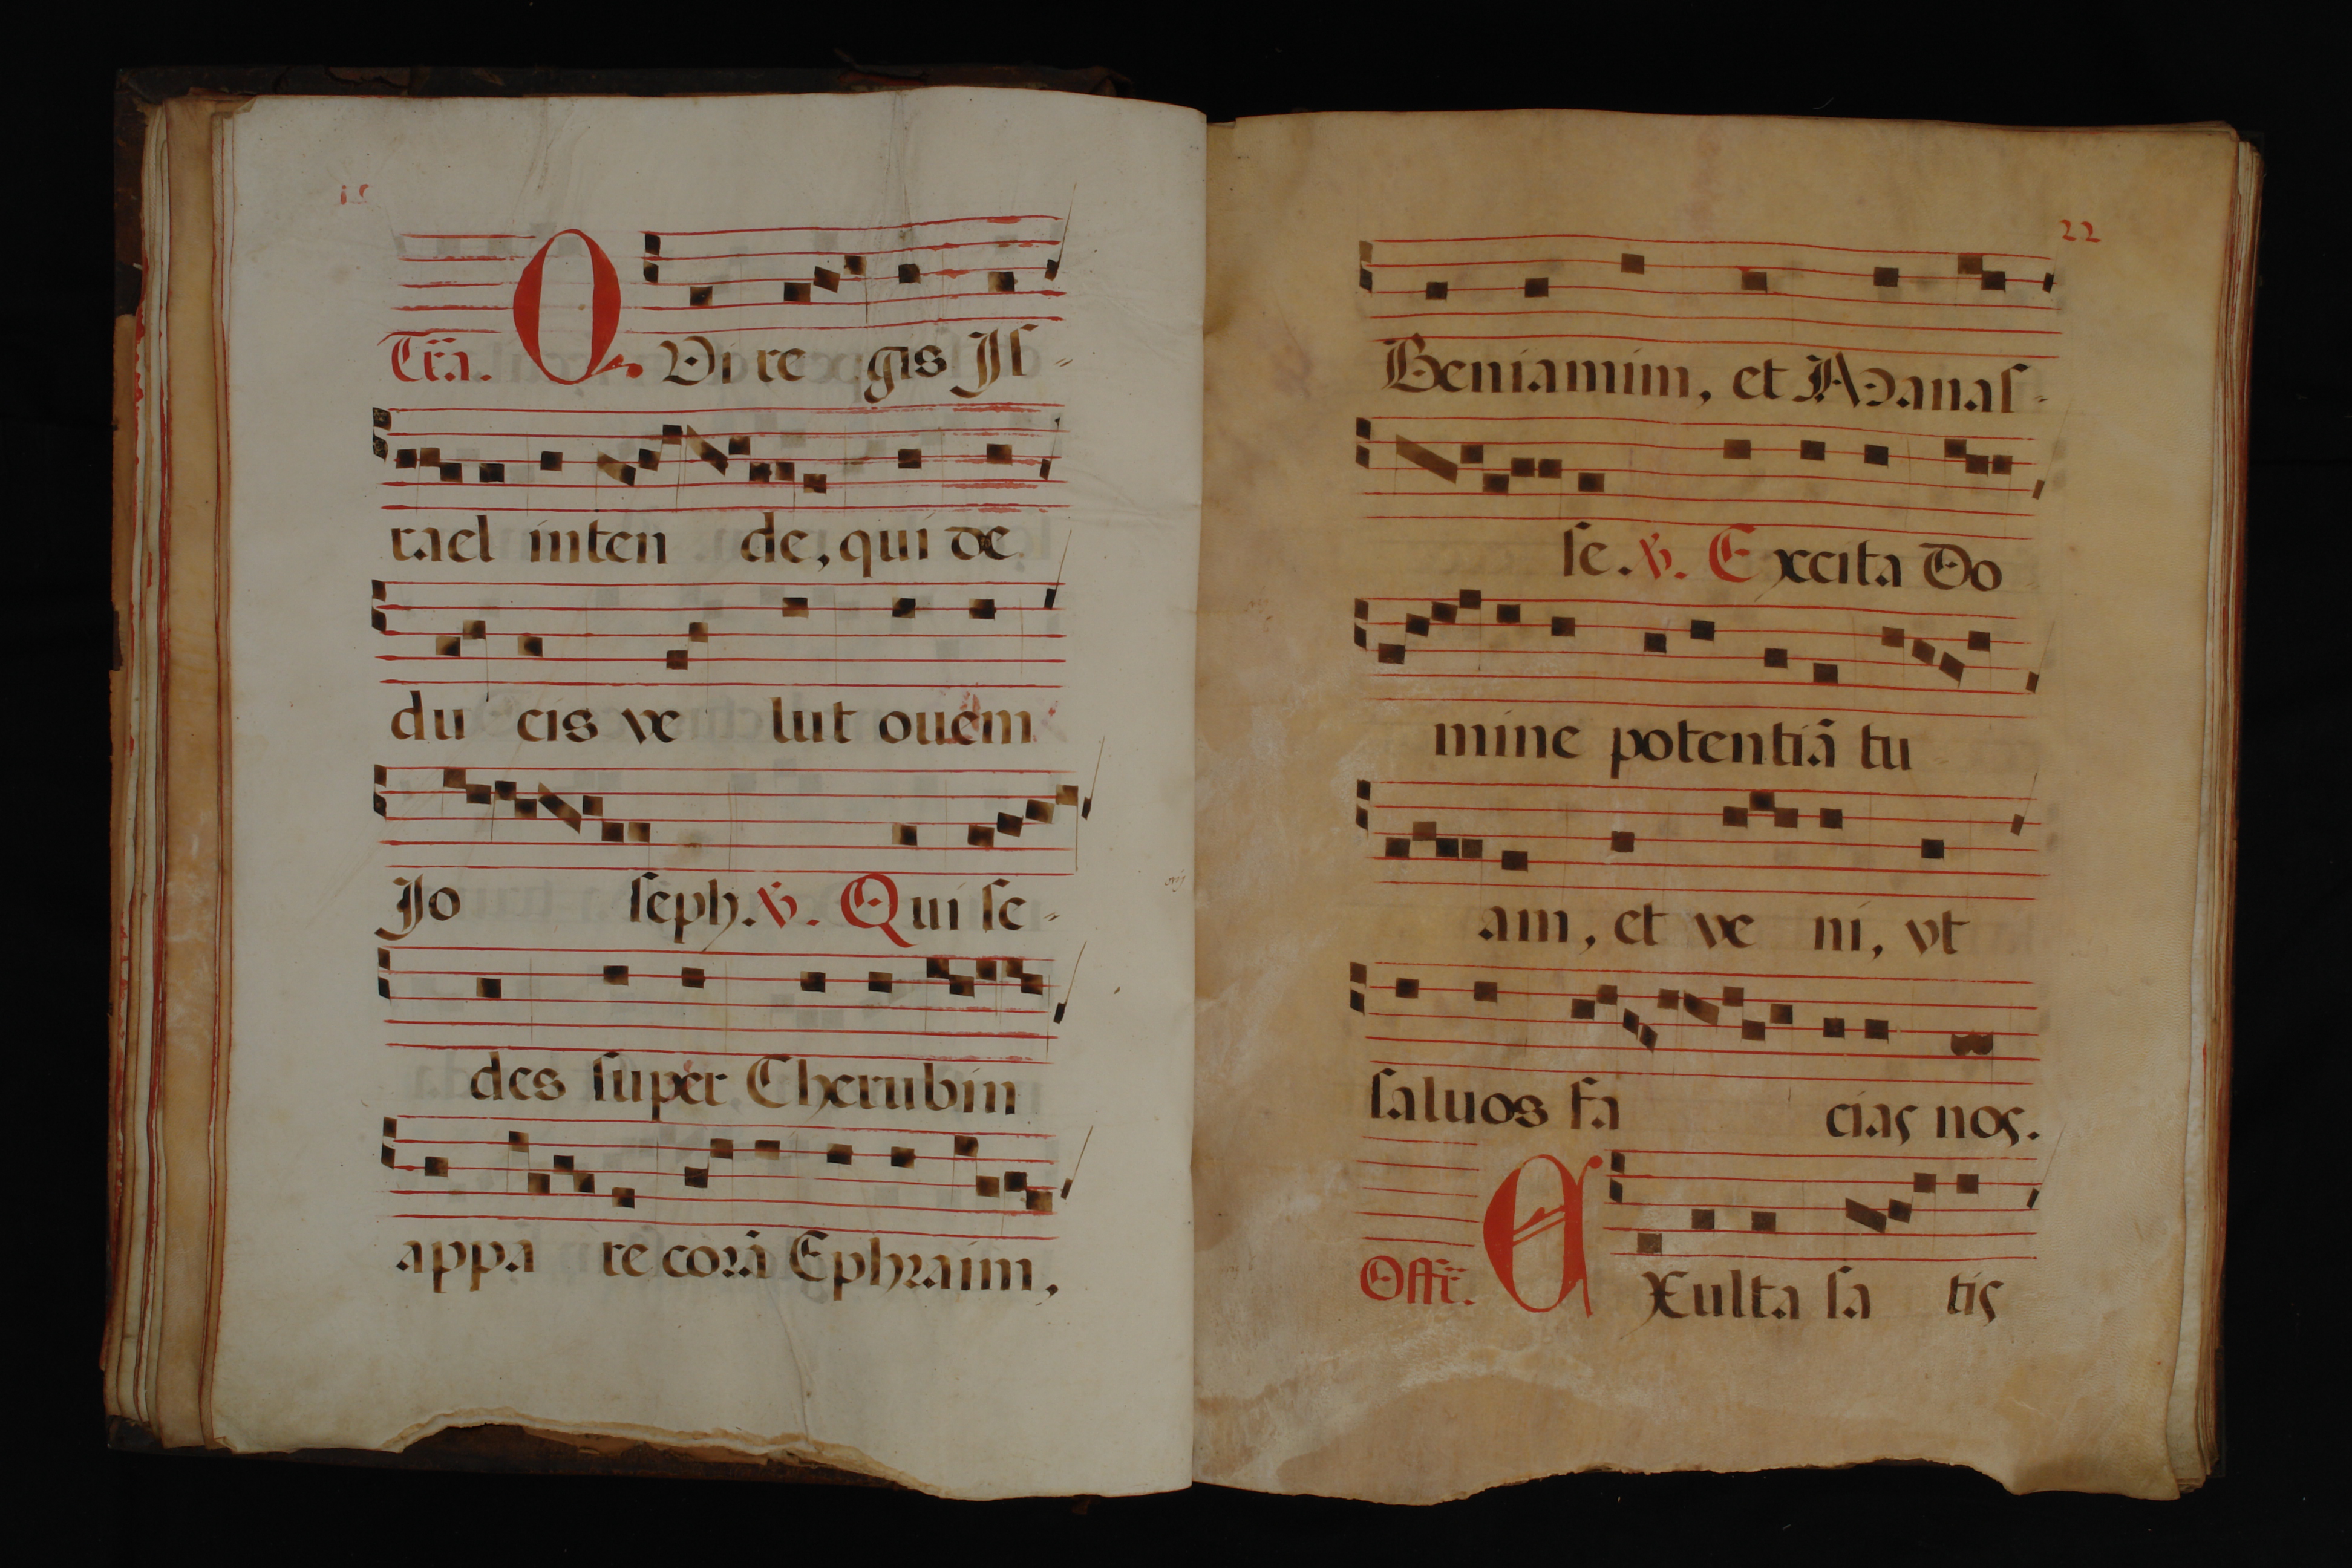 Tr̃a. QVi re gis Iſ-
rael inten de, qui de
du cis ve lut ouem
Jo ſeph. ℣. Qui ſe-
des ſuper Cherubin
appa re corã Ephraim,
22
Beniamim, et Manaſ-
ſe. ℣. Excita Do
mine potentiã tu
am, et ve ni, vt
ſaluos fa cias nos.
Offr̃. EXulta ſa tis